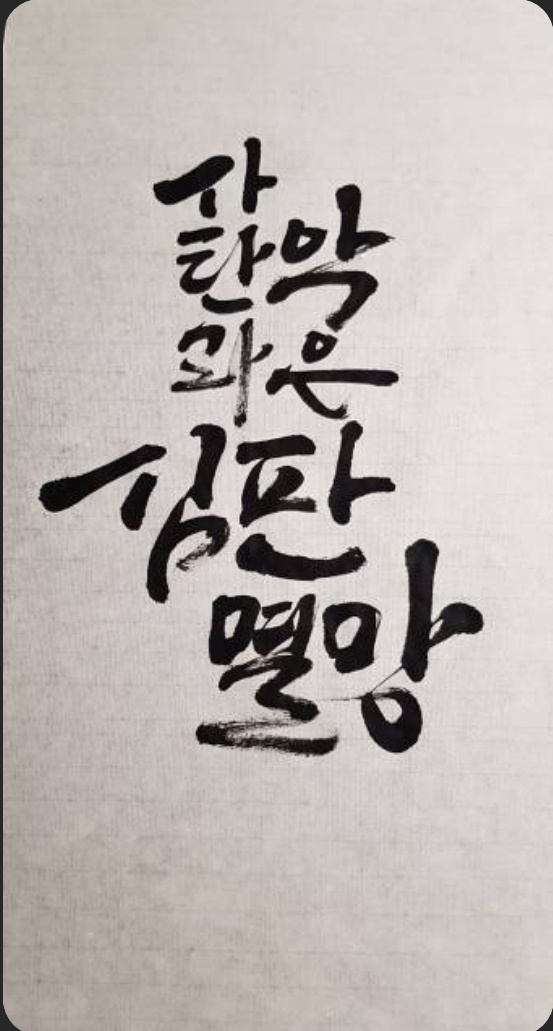 사탄과
악은
심판
멸망